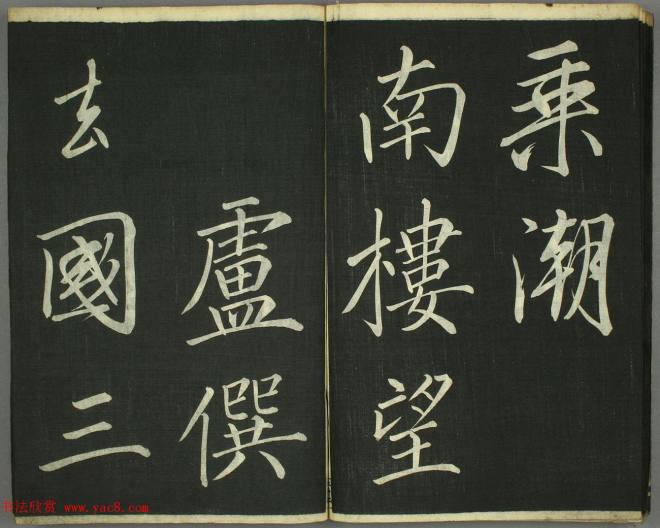 乗潮
南樓望
盧僎
去國三
书法欣赏 www.yac8.com